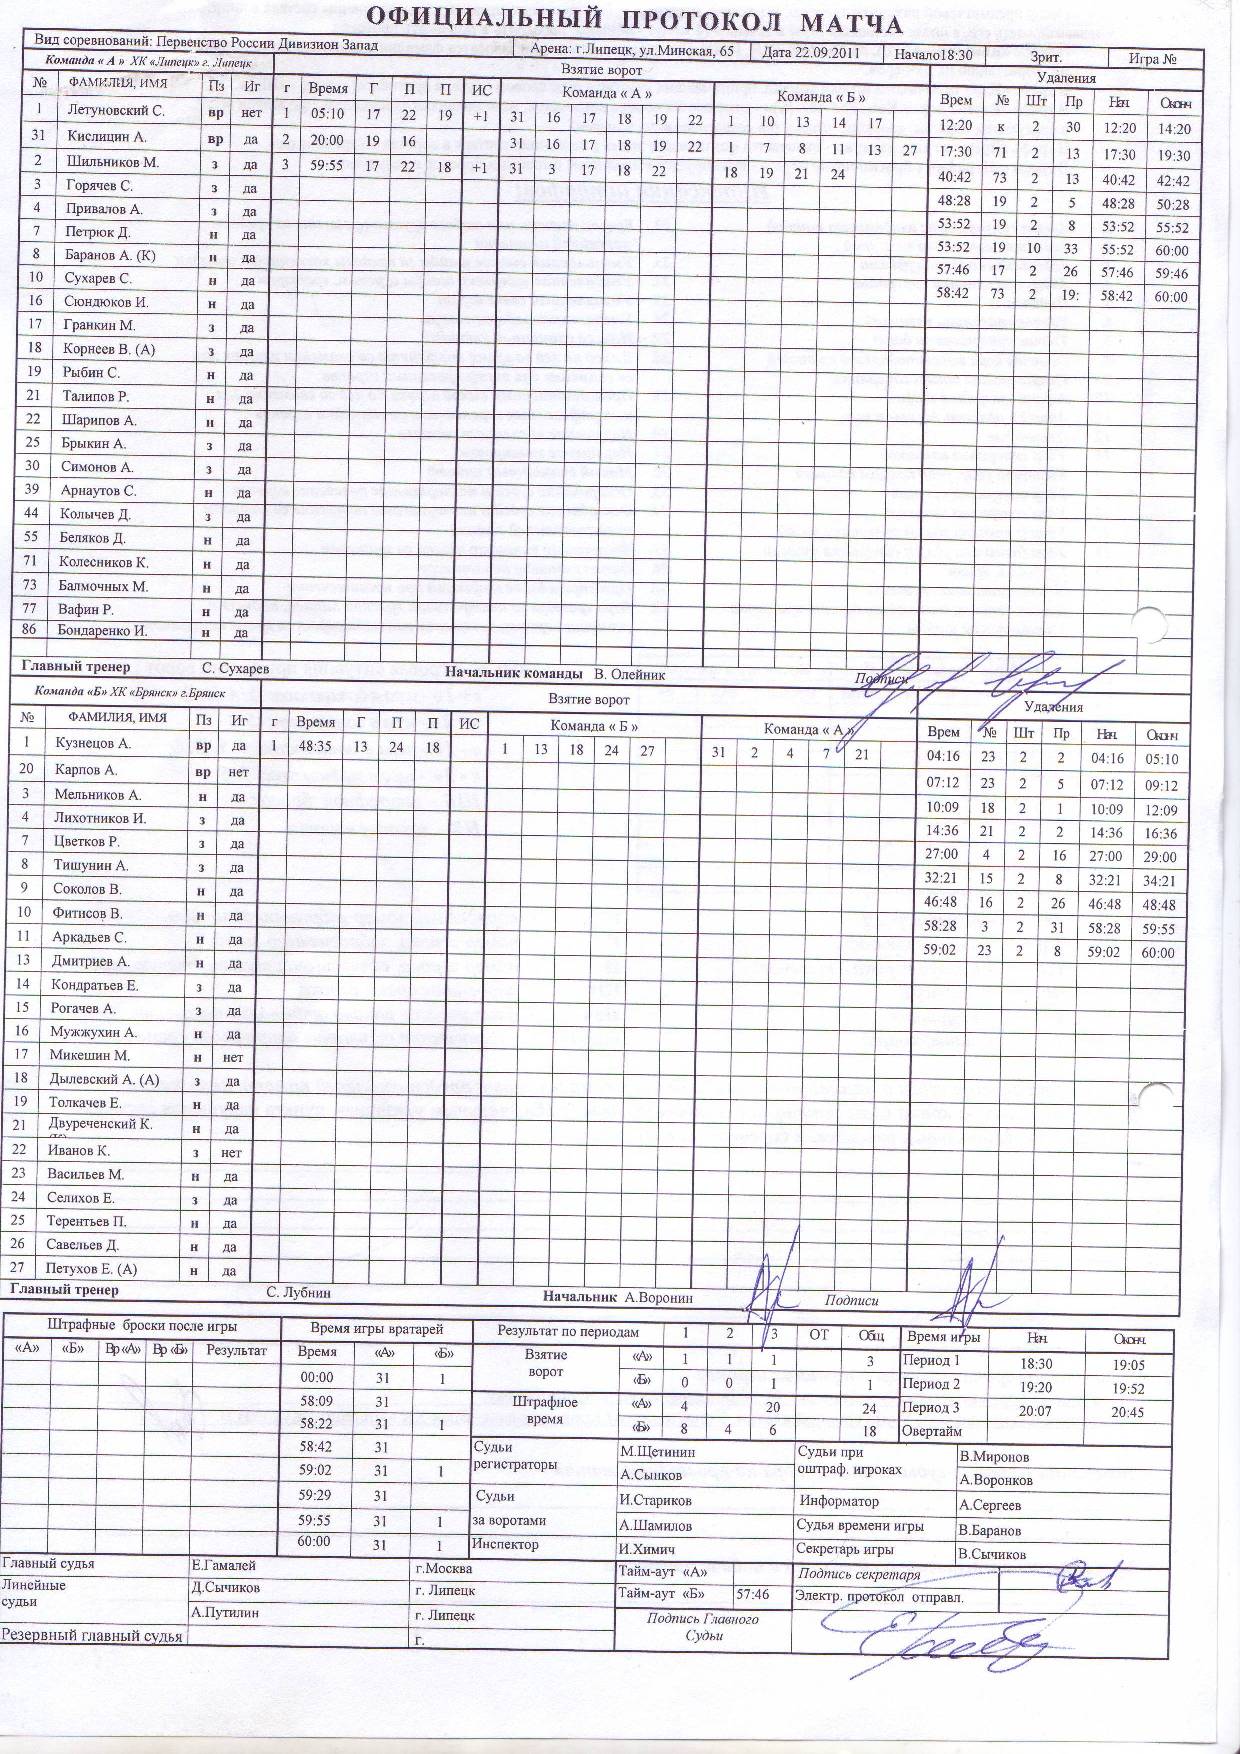 ОФИЦИАЛЬНЫЙ ПРОТОКОЛ МАТЧА
Вид соревнований: Первенство России Дивизион Запад Арена: г.Липецк, ул.Минская, 65 Дата 22.09.2011 Начало18:30 Зрит. Игра №
Команда « А » ХК «Липецк» г. Липецк Взятие ворот Удаления
№ ФАМИЛИЯ, ИМЯ Пз Иг г Время Г П П ИС Команда « А » Команда « Б » Врем № Шт Пр Нач. Оконч
1 Летуновский С. вр нет 1 05:10 17 22 19 +1 31 16 17 18 19 22 1 10 13 14 17 12:20 к 2 30 12:20 14:20
31 Кислицин А. вр да 2 20:00 19 16 31 16 17 18 19 22 1 7 8 11 13 27 17:30 71 2 13 17:30 19:30
2 Шильников М. з да 3 59:55 17 22 18 +1 31 3 17 18 22 18 19 21 24 40:42 73 2 13 40:42 42:42
3 Горячев С. з да 48:28 19 2 5 48:28 50:28
4 Привалов А. з да 53:52 19 2 8 53:52 55:52
7 Петрюк Д. н да 53:52 19 10 33 55:52 60:00
8 Баранов А. (К) н да 57:46 17 2 26 57:46 59:46
10 Сухарев С. н да 58:42 73 2 19: 58:42 60:00
16 Сюндюков И. н да
17 Гранкин М. з да
18 Корнеев В. (А) з да
19 Рыбин С. н да
21 Талипов Р. н да
22 Шарипов А. н да
25 Брыкин А. з да
30 Симонов А. з да
39 Арнаутов С. н да
44 Колычев Д. з да
55 Беляков Д. н да
71 Колесников К. н да
73 Балмочных М. н да
77 Вафин Р. н да
86 Бондаренко И. н да
Главный тренер С. Сухарев Начальник команды В. Олейник Подписи
Команда «Б» ХК «Брянск» г.Брянск Взятие ворот Удаления
№ ФАМИЛИЯ, ИМЯ Пз Иг г Время Г П П ИС Команда « Б » Команда « А » Врем № Шт Пр Нач. Оконч
1 Кузнецов А. вр да 1 48:35 13 24 18 1 13 18 24 27 31 2 4 7 21 04:16 23 2 2 04:16 05:10
20 Карпов А. вр нет 07:12 23 2 5 07:12 09:12
3 Мельников А. н да 10:09 18 2 1 10:09 12:09
4 Лихотников И. з да 14:36 21 2 2 14:36 16:36
7 Цветков Р. з да 27:00 4 2 16 27:00 29:00
8 Тишунин А. з да 32:21 15 2 8 32:21 34:21
9 Соколов В. н да 46:48 16 2 26 46:48 48:48
10 Фитисов В. н да 58:28 3 2 31 58:28 59:55
11 Аркадьев С. н да 59:02 23 2 8 59:02 60:00
13 Дмитриев А. н да
14 Кондратьев Е. з да
15 Рогачев А. з да
16 Мужжухин А. н да
17 Микешин М. н нет
18 Дылевский А. (А) з да
19 Толкачев Е. н да
21 Двуреченский К. н да
22 Иванов К. з нет
23 Васильев М. н да
24 Селихов Е. з да
25 Терентьев П. н да
26 Савельев Д. н да
27 Петухов Е. (А) н да
Главный тренер С. Лубнин Начальник А.Воронин Подписи
Штрафные броски после игры Время игры вратарей Результат по периодам 1 2 3 ОТ Общ Время игры Нач. Оконч.
«А» «Б» Вр «А» Вр «Б» Результат Время «А» «Б» Взятие ворот «А» 1 1 1 3 Период 1 18:30 19:05
00:00 31 1 «Б» 0 0 1 1 Период 2 19:20 19:52
58:09 31 Штрафное время «А» 4 20 24 Период 3 20:07 20:45
58:22 31 1 «Б» 8 4 6 18 Овертайм
58:42 31 Судьи регистраторы М.Щетинин Судьи при оштраф. игроках В.Миронов
59:02 31 1 А.Сынков А.Воронков
59:29 31 Судьи И.Стариков Информатор А.Сергеев
59:55 31 1 за воротами А.Шамилов Судья времени игры В.Баранов
60:00 31 1 Инспектор И.Химич Секретарь игры В.Сычиков
Главный судья Е.Гамалей г.Москва Тайм-аут «А» Подпись секретаря
Линейные судьи Д.Сычиков г. Липецк Тайм-аут «Б» 57:46 Электр. протокол отправл.
А.Путилин г. Липецк Подпись Главного Судьи
Резервный главный судья г.